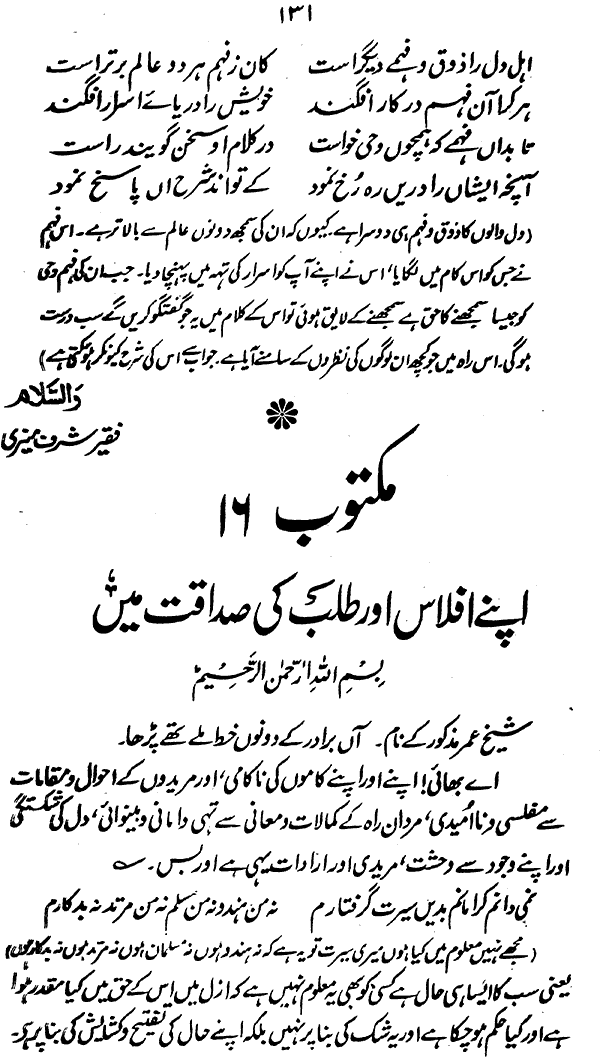 ۱۳۱
اہل دل را ذوق و فہمے دیگر است   کان ز فہم ہر دو عالم برتر است
ہر کرا آن فہم در کار افگند   خویش را در یائے اسرار افگند
تا بداں فہمے کہ ہمچوں وحی خواست   در کلام او سخن گویند راست
آنچہ ایشاں را دریں رہ رُخ نمود   کے تواند شرح آں پاسخ نمود
(دل والوں کا ذوق و فہم ہی دوسرا ہے۔ کیوں کہ ان کی سمجھ دونوں عالم سے بالا تر ہے۔ اس فہم
نے جس کو اس کام میں لگایا، اس نے اپنے آپ کو اسرار کی تہہ میں پہنچا دیا۔ جب ان کی فہم وحی
کو جیسا سمجھنے کا حق ہے سمجھنے کے لایق ہوئی تو اس کے کلام میں یہ جو گفتگو کریں گے سب درست
ہوگی۔ اس راہ میں جو کچھ ان لوگوں کی نظروں کے سامنے آیا ہے۔ جواب سے اس کی شرح کیونکر ہو سکتا ہے)
والسّلام
فقیر شرف منیری
مکتوب ۱۶
اپنے افلاس اور طلب کی صداقت میں
بِسْمِ اللہِ الرَّحمٰنِ الرَّحِیْمِ
شیخ عمر مذکور کے نام۔ آں برادر کے دونوں خط ملے تھے پڑھا۔
اے بھائی! اپنے اور اپنے کاموں کی ناکامی، اور مریدوں کے احوال و مقامات
سے مفلسی و نا اُمیدی، مردان راہ کے کمالات و معانی سے تہی دامانی و بینوائی، دل کی شکستگی
اور اپنے وجود سے وحشت، مریدی اور ارادات یہی ہے اور بس۔
نمی دانم کرا مانم بدیں سیرت گرفتارم   نہ من ہندو نہ من مسلم نہ من مرتد نہ بدکارم
(مجھے نہیں معلوم میں کیا ہوں میری سیرت تو یہ ہے کہ نہ ہندو ہوں نہ مسلمان ہوں نہ مرتد ہوں نہ بدکار ہوں)
یعنی سب کا ایسا ہی حال ہے کسی کو بھی یہ معلوم نہیں ہے کہ ازل میں اس کے حق میں کیا مقدر ہوا
ہے اور کیا حکم ہو چکا ہے اور یہ شک کی بنا پر نہیں بلکہ اپنے حال کی تفتیح و کشایش کی بنا پر ہے۔